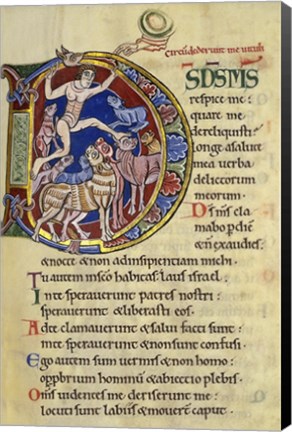 Circũdederunt me uituli
DS DS MS
respice me:
quare me
dereliquisti:
longe a salute
mea uerba
delictorum
meorum.
Ds ms cla
mabo p diẽ
& ñ exaudies:
& nocte & non ad insipientiam michi.
Tu autem in sc̃o habitas: laus israel.
In te sperauerunt patres nostri:
sperauerunt & liberasti eos.
Ad te clamauerunt & salui facti sunt:
in te sperauerunt & non sunt confusi.
Ego autem sum uermis & non homo:
opprobrium hominũ & abiectio plebis.
Oms uidentes me deriserunt me:
locuti sunt labiis & mouerunt caput.